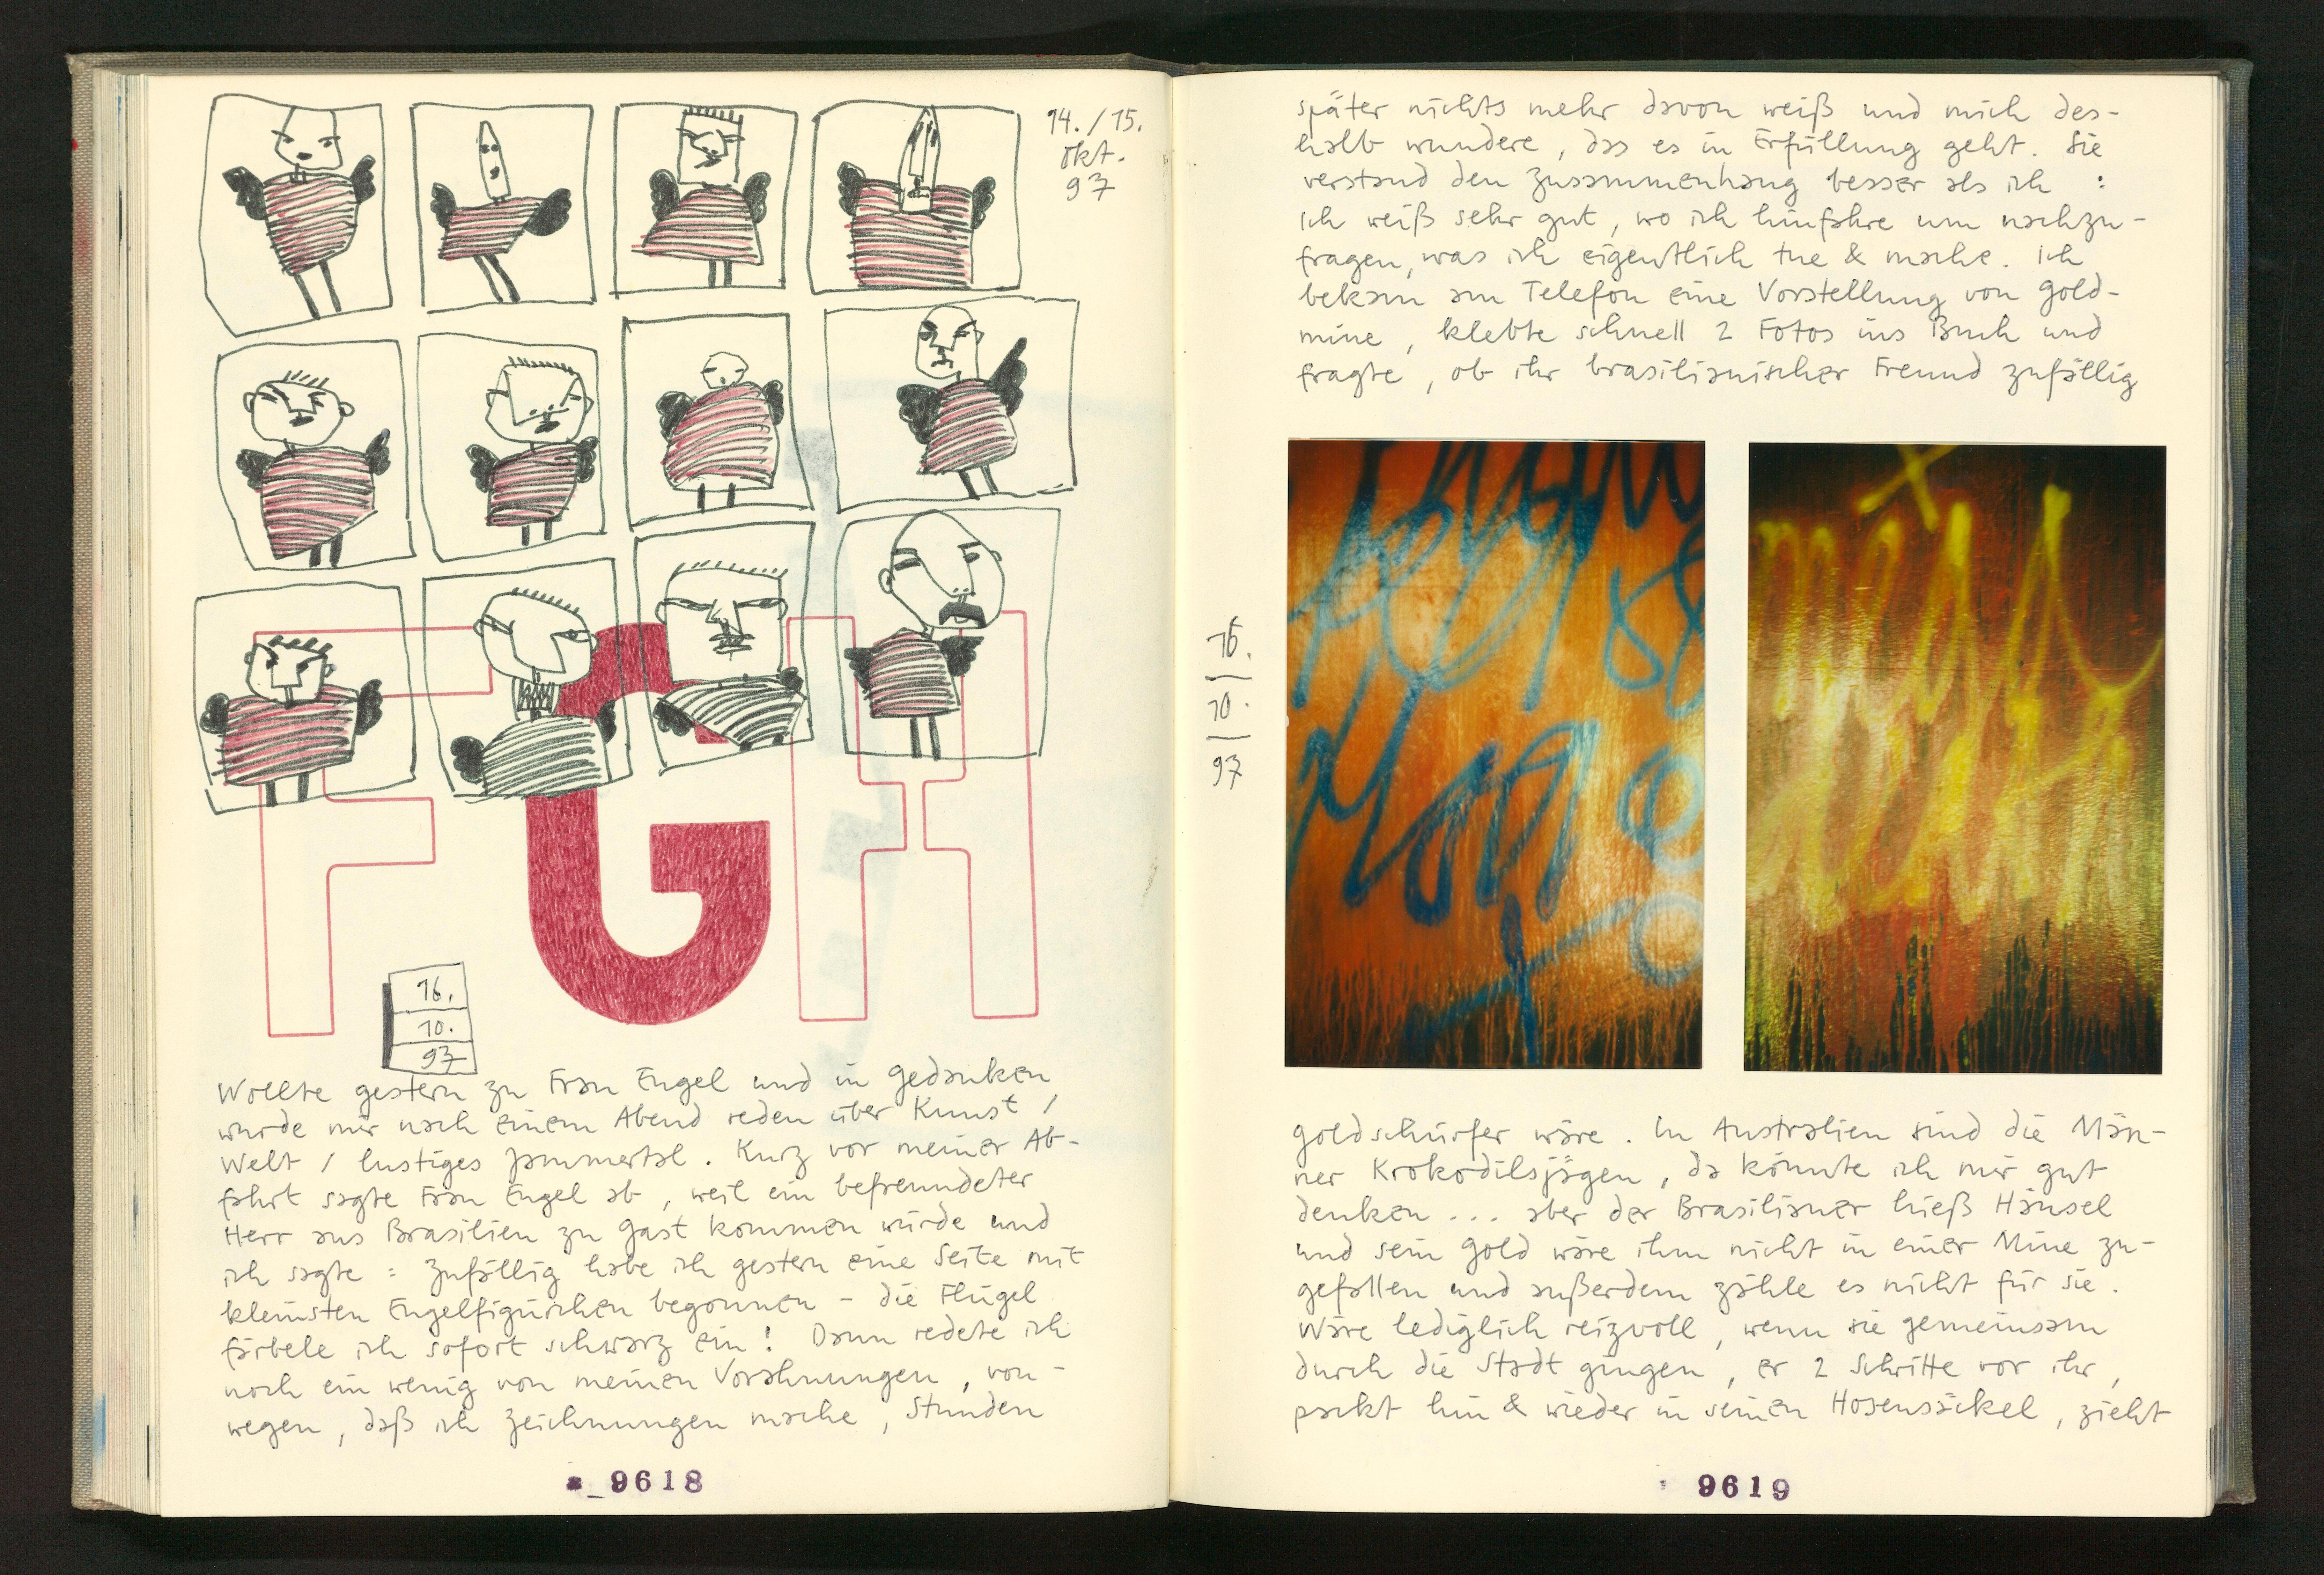 14./15.
Okt.
97
F G H
16.
10.
97
Wollte gestern zu Frau Engel und in Gedanken
wurde mir nach einem Abend reden über Kunst /
Welt / lustiges Jammertal. Kurz vor meiner Ab-
fahrt sagte Frau Engel ab, weil ein befreundeter
Herr aus Brasilien zu Gast kommen würde und
ich sagte : Zufällig habe ich gestern eine Seite mit
kleinsten Engelfigürchen begonnen – die Flügel
färbele ich sofort schwarz ein! Dann redete ich
noch ein wenig von meinen Vorahnungen, von-
wegen, daß ich Zeichnungen mache, Stunden
9618
später nichts mehr davon weiß und mich des-
halb wundere, das es in Erfüllung geht. Sie
verstand den Zusammenhang besser als ich :
Ich weiß sehr gut, wo ich hinfahre um nachzu-
fragen, was ich eigentlich tue & mache. Ich
bekam am Telefon eine Vorstellung von Gold-
mine, klebte schnell 2 Fotos ins Buch und
fragte, ob ihr brasilianischer Freund zufällig
16.
10.
97
Goldschürfer wäre. In Australien sind die Män-
ner Krokodilsjägen, da könnte ich mir gut
denken ... aber der Brasilianer hieß Hänsel
und sein Gold wäre ihm nicht in einer Mine zu-
gefallen und außerdem zähle es nicht für sie.
Wäre lediglich reizvoll, wenn sie gemeinsam
durch die Stadt gingen, er 2 Schritte vor ihr,
packt hin & wieder in seinen Hosensäckel, zieht
9619